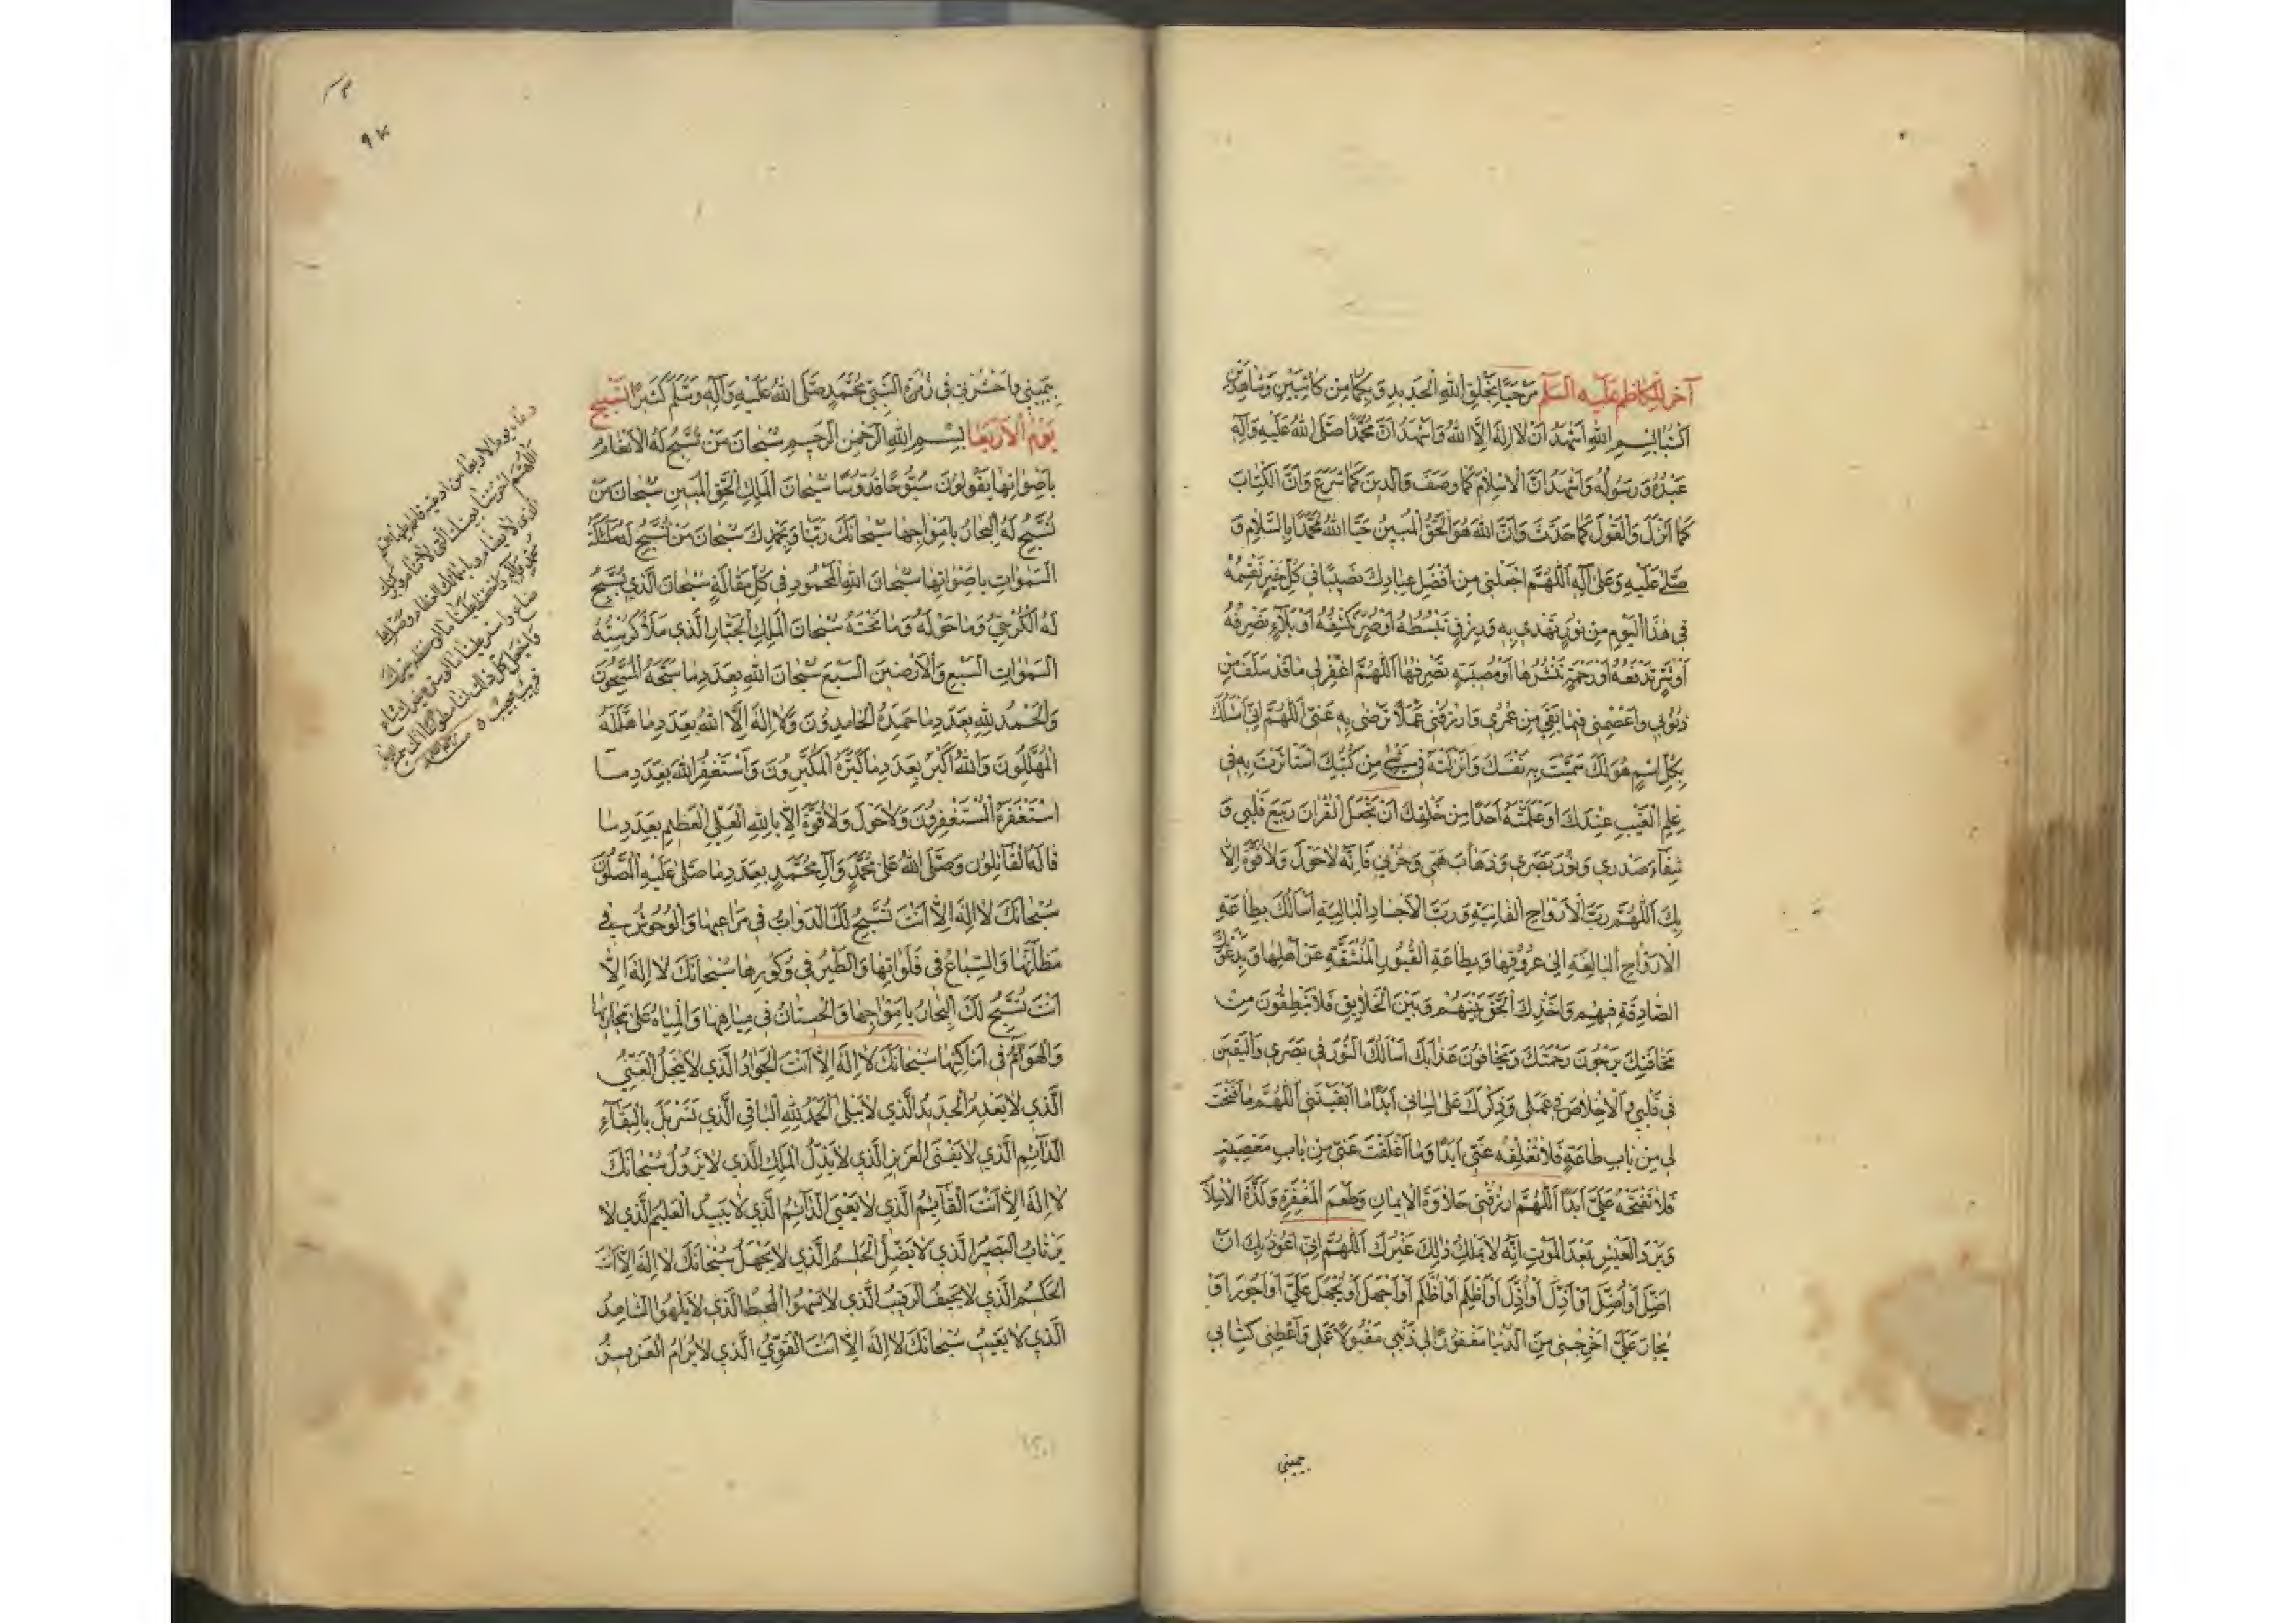 آخر للكاظم عليه السلم مرحبا بخلق الله الجديد وبكما من كاتبين وشاهدين
اكتبا بسم الله اشهد ان لا اله الا الله واشهد ان محمدا صلى الله عليه وآله
عبده ورسوله واشهد ان الاسلام كما وصف والدين كما شرع وان الكتاب
كما انزل والقول كما حدث وان الله هو الحق المبين حيا الله محمدا بالسلام و
صلى عليه وعلى آله اللهم اجعلني من افضل عبادك نصيبا في كل خير تقسمه
في هذا اليوم من نور تهدي به ورزق تبسطه او ضر تكشفه او بلاء تصرفه
او شر تدفعه او رحمة تنشرها او مصيبة تصرفها اللهم اغفر لي ما قد سلف من
ذنوبي واعصمني فيما بقي من عمري وارزقني عملا ترضى به عني اللهم اني اسئلك
بكل اسم هو لك سميت به نفسك وانزلته في شئ من كتبك استاثرت به في
علم الغيب عندك او علمته احدا من خلقك ان تجعل القران ربيع قلبي و
شفاء صدري ونور بصري وذهاب همي وحزني فانه لا حول ولا قوة الا
بك اللهم رب الارواح الفانية ورب الاجساد البالية أسألك بطاعة
الارواح البالغة الى عروقها وبطاعة القبور المنشقة عن اهلها وبدعوتك
الصادقة فيهم واخذك الحق بينهم وبين الخلايق فلا ينطقون من
مخافتك يرجون رحمتك ويخافون عذابك اسألك النور في بصري واليقين
في قلبي والاخلاص في عملي وذكرك على لساني ابدا ما ابقيتني اللهم ما فتحت
لي من باب طاعة فلا تغلقه عني ابدا وما اغلقت عني من باب معصية
فلا تفتحه علي ابدا اللهم ارزقني حلاوة الايمان وطعم المغفرة ولذة الاسلام
وبرد العيش بعد الموت انه لا يملك ذلك غيرك اللهم اني اعوذ بك ان
اضل او اضل او اذل او اذل او اظلم او اظلم او اجهل او يجهل علي او اجور او
يجار علي اخرجني من الدنيا مغفورا لي ذنبي مقبولا عملي واعطني كتابي
بيميني
بيميني واحشرني في زمرة النبي محمد صلى الله عليه وآله وسلم كثيرا تسبيح
يوم الاربعا بسم الله الرحمن الرحيم سبحان من تسبح له الانعام
باصواتها يقولون سبوحا قدوسا سبحان الملك الحق المبين سبحان من
تسبح له البحار بامواجها سبحانك ربنا وبحمدك سبحان من تسبح له ملئكة
السموات باصواتها سبحان الله المحمود في كل مقالة سبحان الذي يسبح
له الكرسي وما حوله وما تحته سبحان الملك الجبار الذي ملأ كرسيه
السموات السبع والارضين السبع سبحان الله بعدد ما سبحه المسبحون
والحمد لله بعدد ما حمده الحامدون ولا اله الا الله بعدد ما هلله
المهللون والله اكبر بعدد ما كبره المكبرون واستغفر الله بعدد ما
استغفره المستغفرون ولا حول ولا قوة الا بالله العلي العظيم بعدد ما
قاله القائلون وصلى الله على محمد وآل محمد بعدد ما صلى عليه المصلون
سبحانك لا اله الا انت تسبح لك الدواب في مراعيها والوحوش في
مظانها والسباع في فلواتها والطير في وكورها سبحانك لا اله الا
انت تسبح لك البحار بامواجها والحيتان في مياهها والمياه على مجاريها
والهوام في اماكنها سبحانك لا اله الا انت الجواد الذي لا يبخل الغني
الذي لا يعدم الجديد الذي لا يبلى الحمد لله الباقي الذي تسربل بالبقاء
الدائم الذي لا يفنى العزيز الذي لا يذل الملك الذي لا يزول سبحانك
لا اله الا انت القائم الذي لا يعيى الدائم الذي لا يبيد العليم الذي لا
يرتاب البصير الذي لا يضل الحليم الذي لا يجهل سبحانك لا اله الا انت
الحكيم الذي لا يحيف الرقيب الذي لا يسهوا المحيط الذي لا يلهوا الشاهد
الذي لا يغيب سبحانك لا اله الا انت القوي الذي لا يرام العزيز
دعاء يوم الاربعا من ادعية فاطمة
اللهم احرسنا بعينك التي لا تنام وركنك
الذي لا يضام وباسمائك العظام وصل على
محمد وآله واحفظ علينا ما لو حفظه غيرك
ضاع واستر علينا ما لو ستره غيرك شاع
واجعل كل ذلك لنا مطواعا انك سميع الدعاء
قريب مجيب